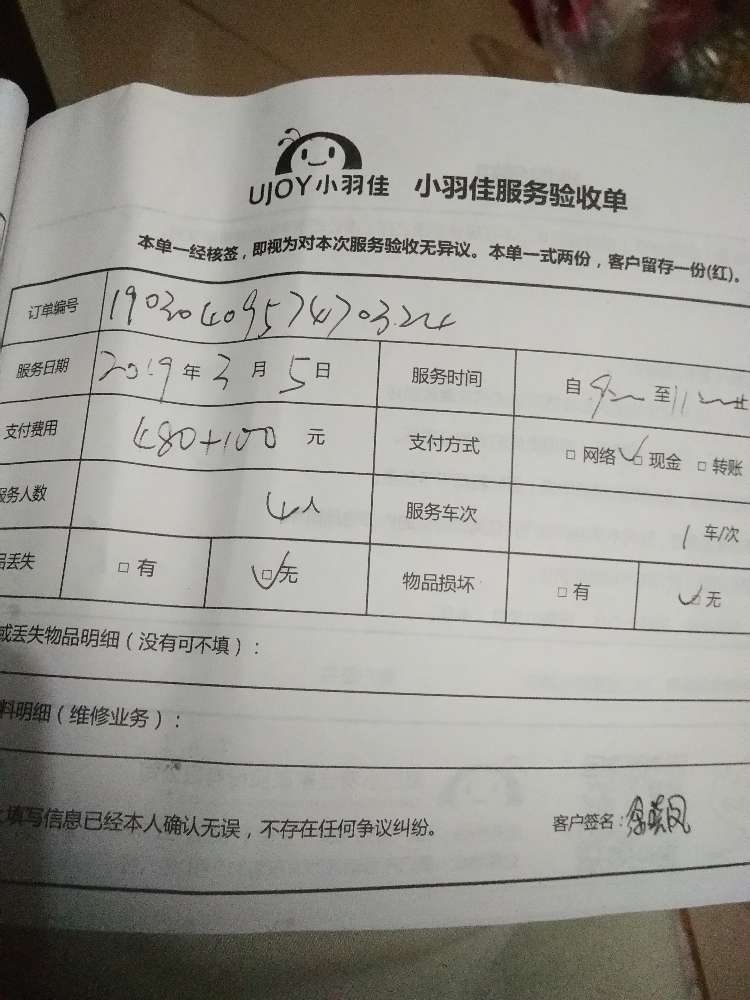 UJOY小羽佳 小羽佳服务验收单
本单一经核签，即视为对本次服务验收无异议。本单一式两份，客户留存一份(红)。
订单编号 1903040957470324
服务日期 2019年3月5日 服务时间 自 至11
支付费用 480+100 元 支付方式 □网络 □现金 □转账
服务人数 4人 服务车次 1车/次
品丢失 □有 □无 物品损坏 □有 □无
或丢失物品明细（没有可不填）：
料明细（维修业务）：
填写信息已经本人确认无误，不存在任何争议纠纷。 客户签名：